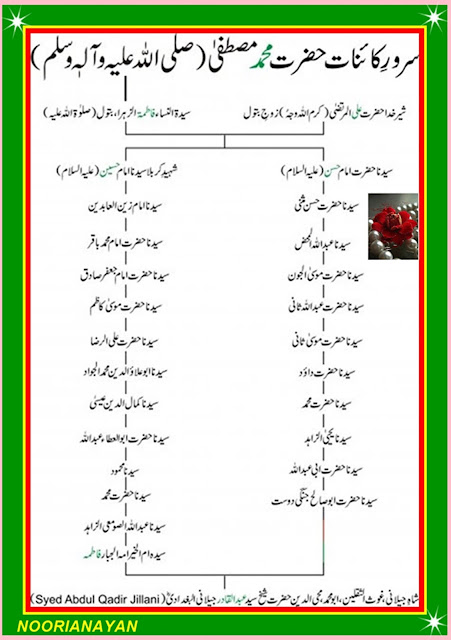 سرورِ کائنات حضرت محمد مصطفیٰ (صلی اللہ علیہ وآلہٖ وسلم)
شیر خدا حضرت علی المرتضیٰ (کرم اللہ وجہٗ) زوج بتول
سیدۃ النساء فاطمۃ الزہراء، بتول (صلوٰۃ اللہ علیہ)
سیدنا حضرت امام حسن (علیہ السلام)
سیدنا حضرت حسن مثنیٰ
سیدنا عبداللہ المحض
سیدنا حضرت موسیٰ الجون
سیدنا حضرت عبداللہ ثانی
سیدنا حضرت موسیٰ ثانی
سیدنا حضرت داؤد
سیدنا حضرت محمد
سیدنا یحییٰ الزاہد
سیدنا حضرت ابی عبداللہ
سیدنا حضرت ابو صالح جنگی دوست
شہید کربلا سیدنا امام حسین (علیہ السلام)
سیدنا امام زین العابدین
سیدنا حضرت امام محمد باقر
سیدنا حضرت امام جعفر صادق
سیدنا حضرت موسیٰ کاظم
سیدنا حضرت علی الرضا
سیدنا ابو علاؤالدین محمد الجواد
سیدنا کمال الدین عیسیٰ
سیدنا حضرت ابوالعطاء عبداللہ
سیدنا محمود
سیدنا حضرت محمد
سیدنا عبداللہ الصومعی الزاہد
سیدہ ام الخیر امۃ الجبار فاطمہ
شاہِ جیلانی، غوث الثقلین، ابو محمد، محی الدین حضرت شیخ سید عبدالقادر جیلانی البغدادیؒ (Syed Abdul Qadir Jillani)
NOORIANAYAN